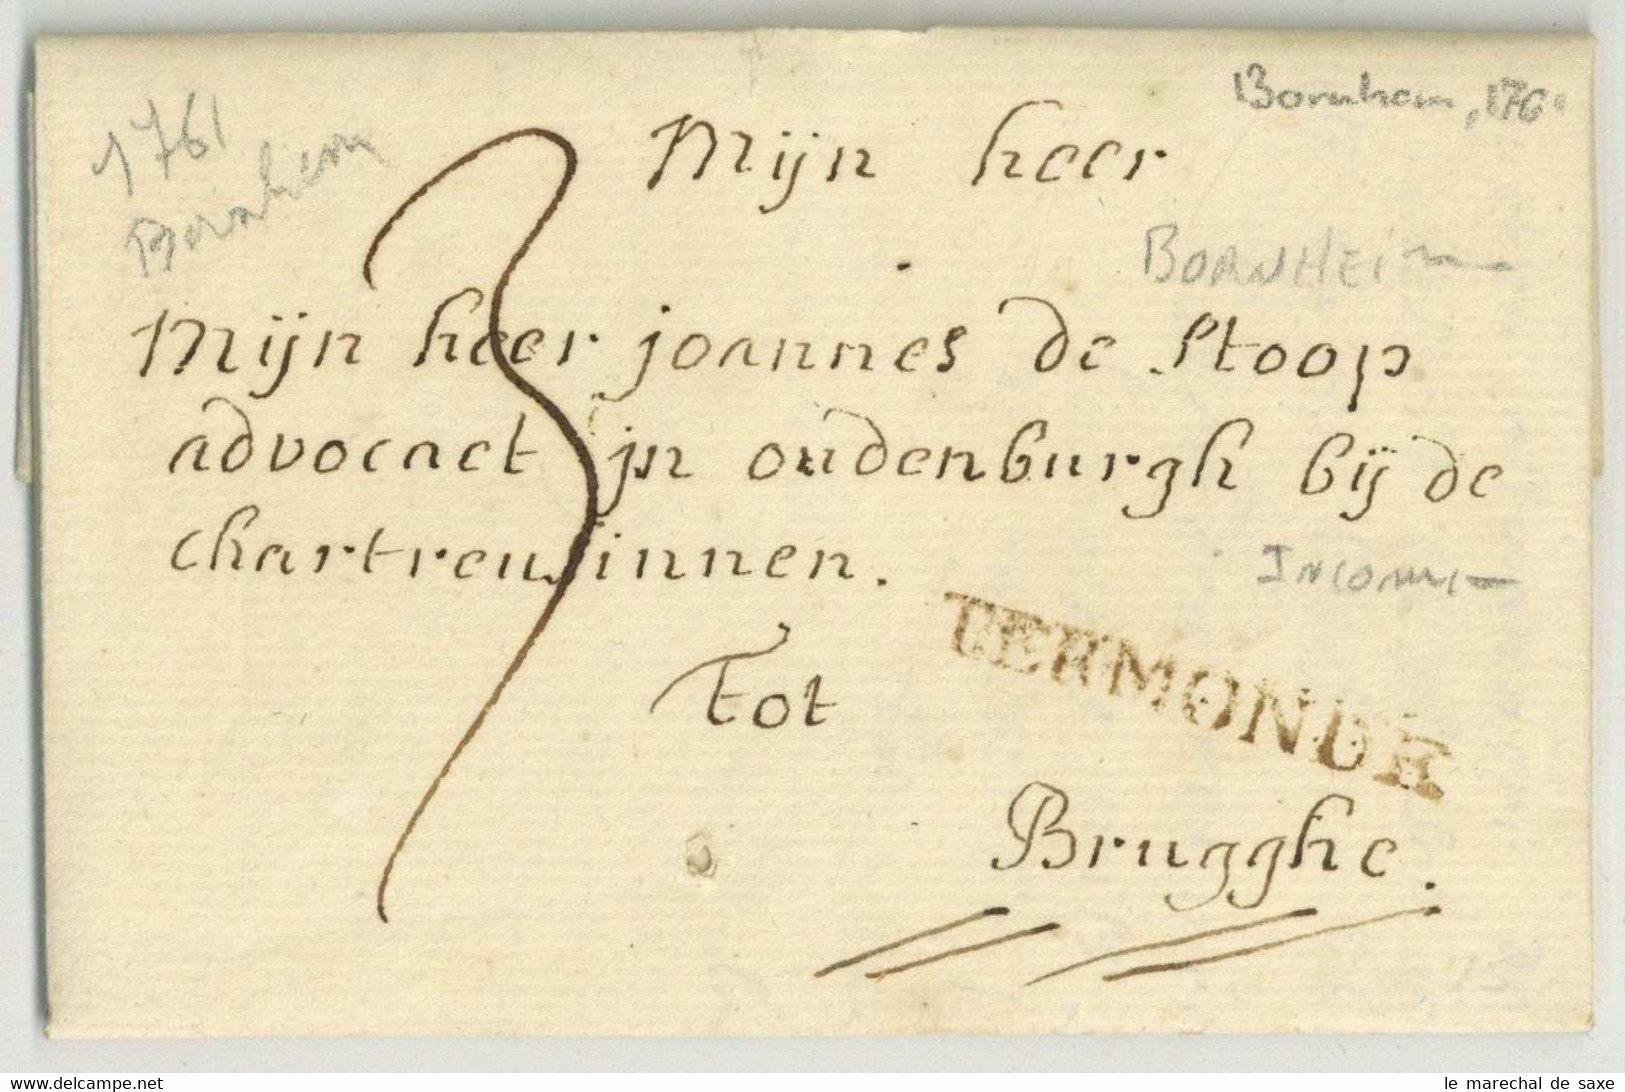 Bornhem, 176
1761
Bornhem
Mijn heer
BORNHEIM
3
Mijn heer joannes de Stoop
advocaet jn oudenburgh bij de
chartreusinnen.
INCONNU
TERMONDE
Tot
Brugghe.
www.delcampe.net
le marechal de saxe